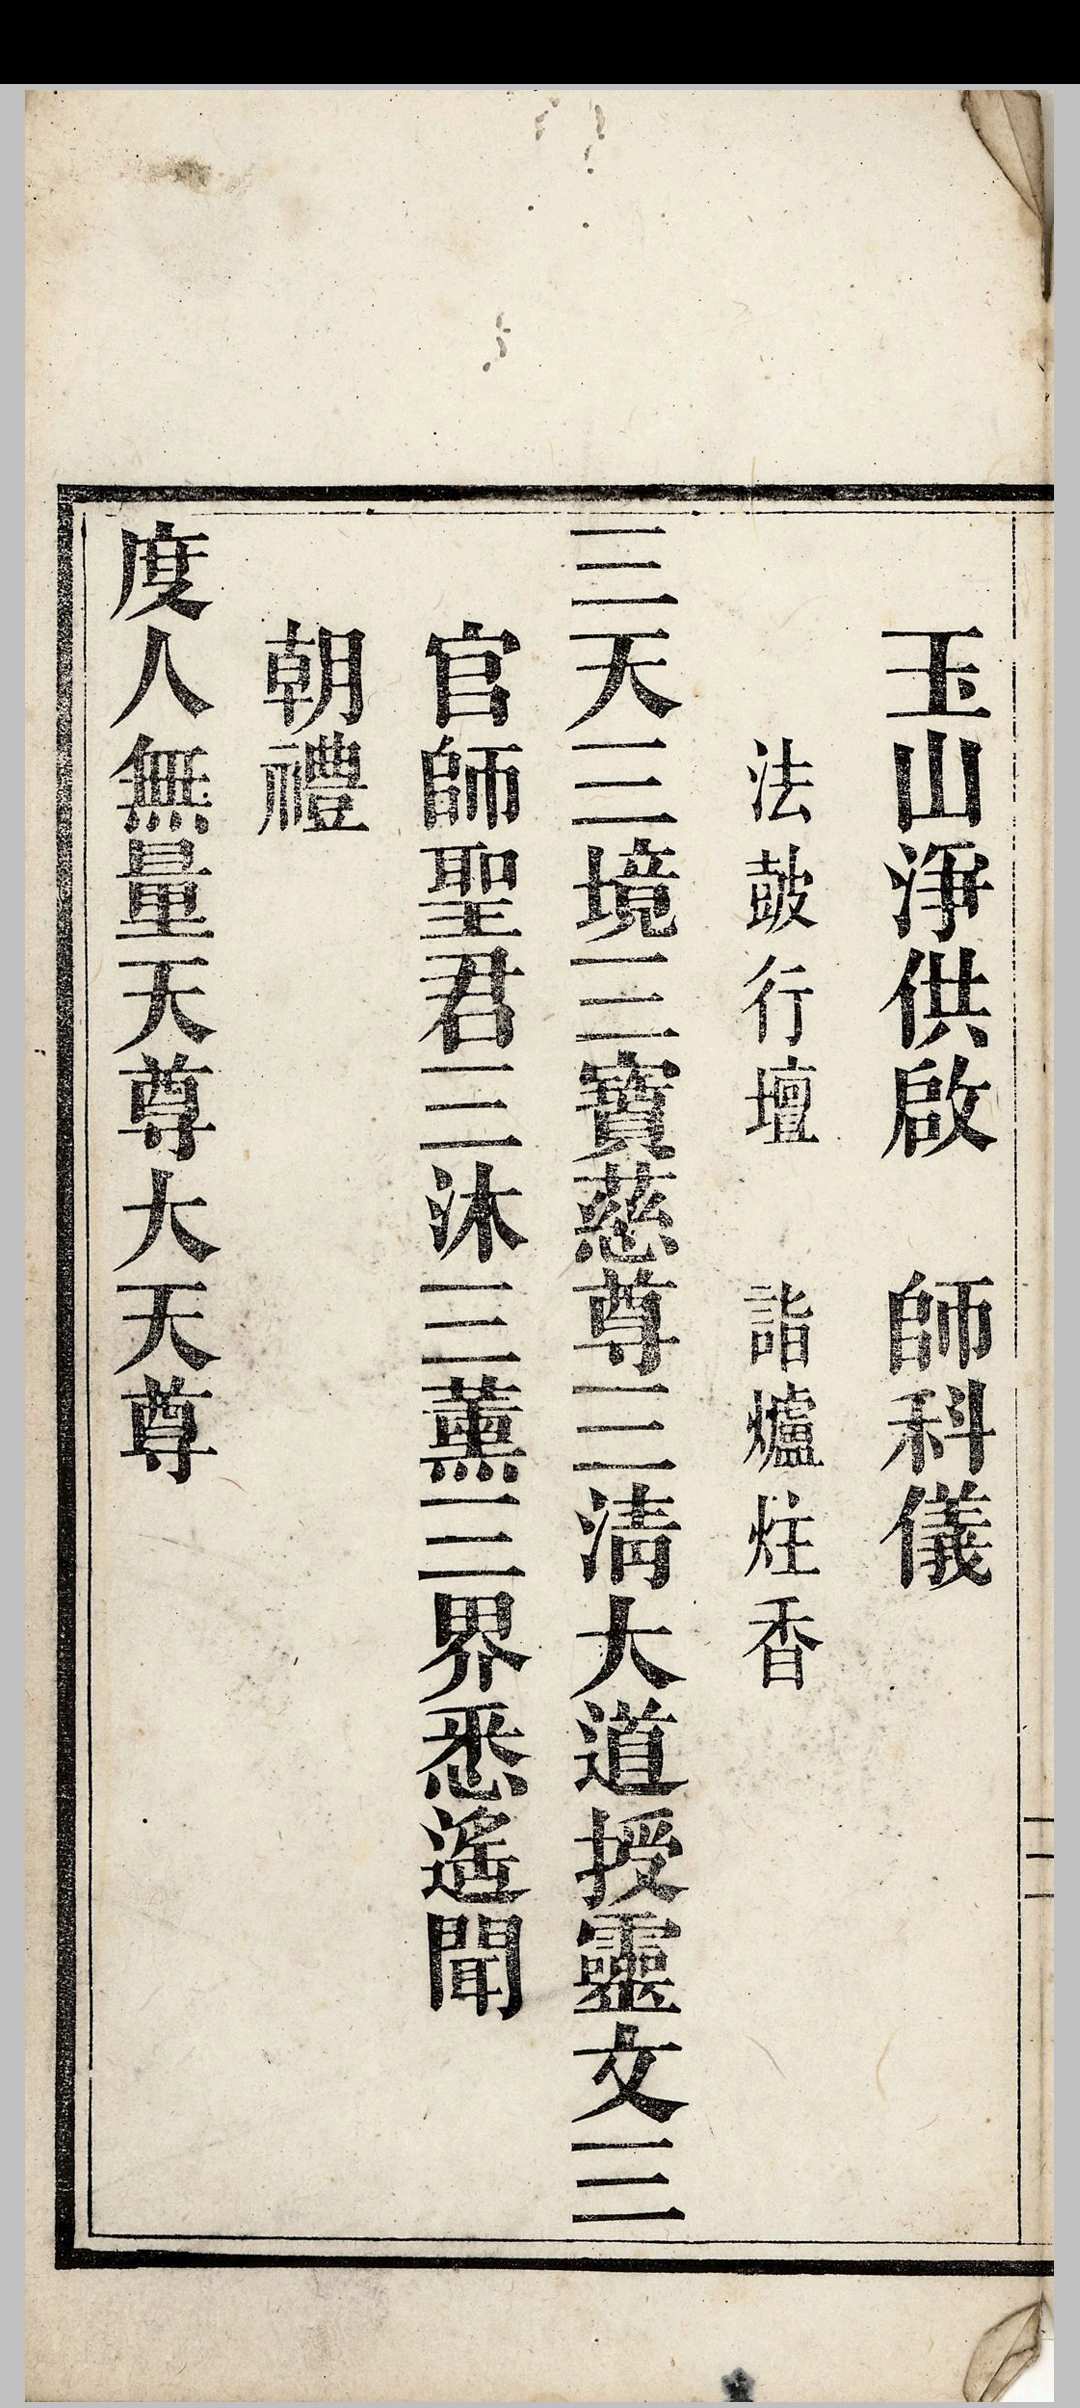 玉山淨供啟　師科儀
法鼓行壇　詣爐炷香
三天三境三寳慈尊三清大道授靈文三
官師聖君三沐三薰三界悉遙聞
朝禮
度人無量天尊大天尊